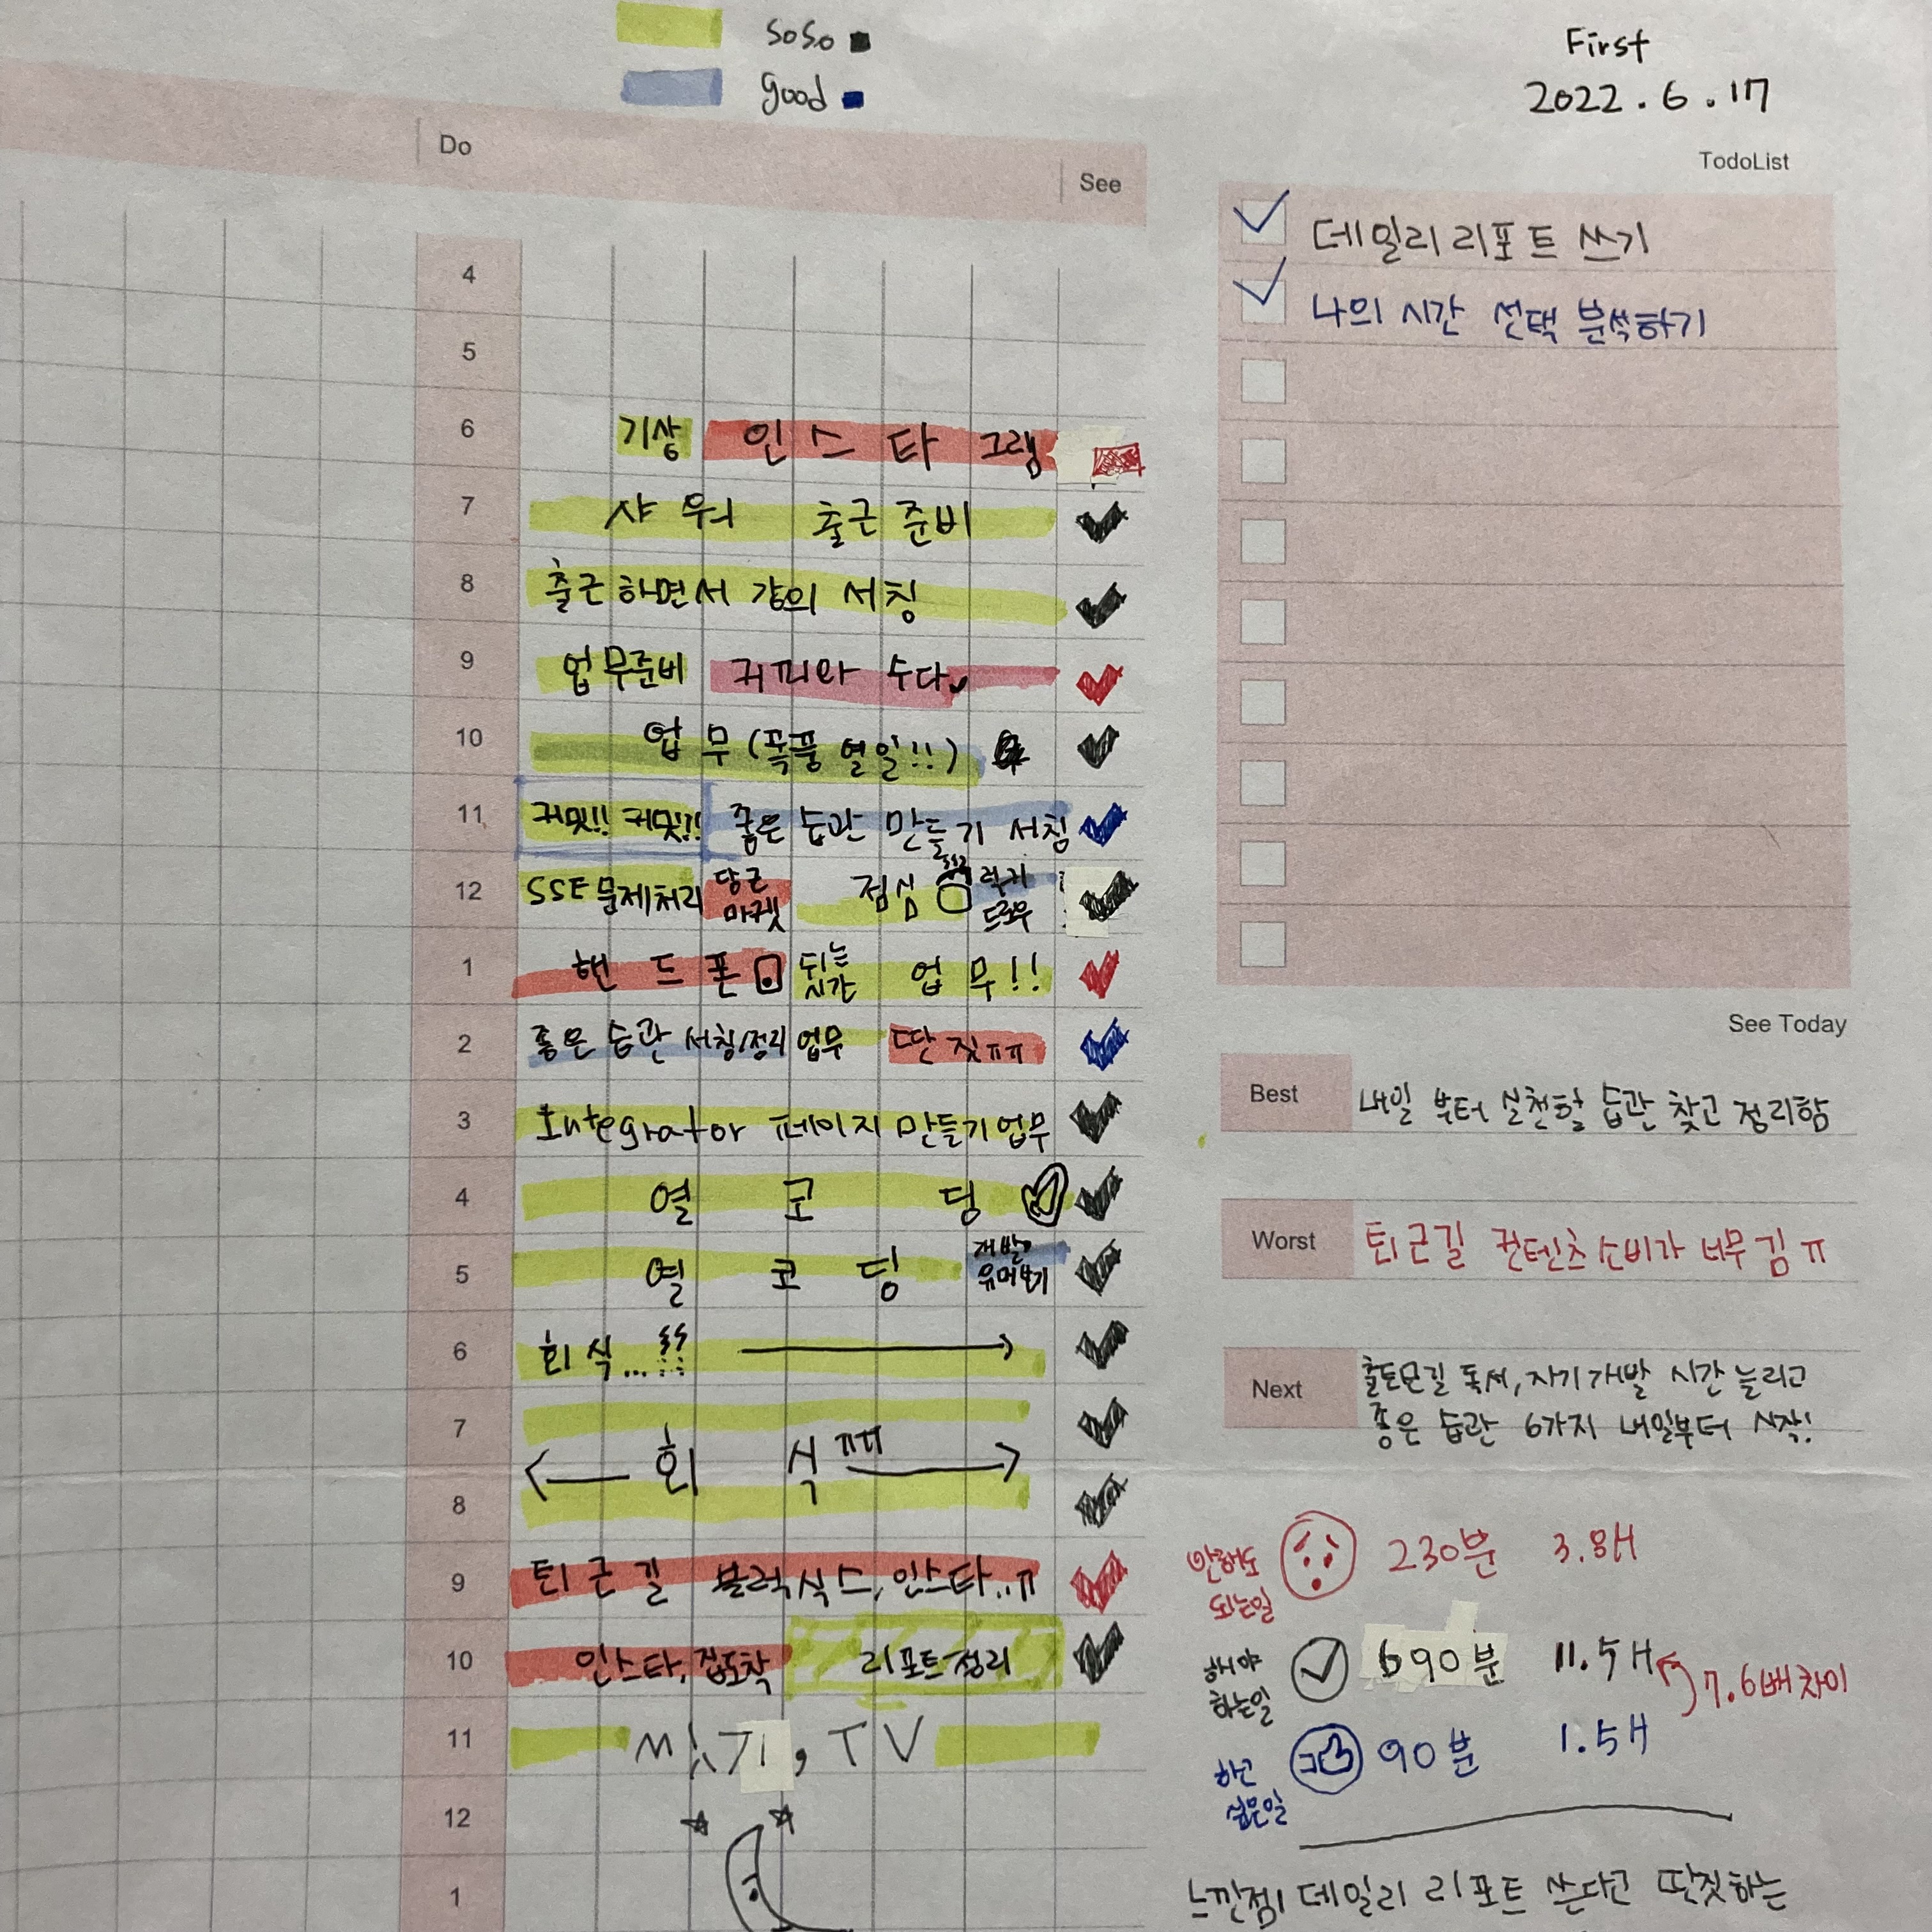 soso
good
First
2022.6.17
Do
See
TodoList
데일리 리포트 쓰기
나의 시간 선택 분석하기
4
5
6 기상 인스타그램
7 샤워 출근준비
8 출근하면서 강의 서칭
9 업무준비 커피와 수다
10 업무(폭풍 열일!!)
11 커밋!! 커밋!! 좋은 습관 만들기 서칭
12 SSE 문제처리 당근마켓 점심 럭키드로우
1 핸드폰 뒤는시간 업무!!
2 좋은 습관 서칭/정리 업무 딴짓ㅠㅠ
3 Integrator 페이지 만들기 업무
4 열코딩
5 열코딩 개발유머보기
6 회식...!!
7
회식 ㅠㅠ
8
9 퇴근길 블럭식스, 인스타..ㅠ
10 인스타, 집도착 리포트정리
11 씻기, TV
12
1
See Today
Best 내일 부터 실천할 습관 찾고 정리함
Worst 퇴근길 컨텐츠소비가 너무 김 ㅠ
Next 출퇴근길 독서, 자기개발 시간 늘리고
좋은 습관 6가지 내일부터 시작!
안해도 되는일 230분 3.8H
해야 하는일 690분 11.5H
7.6배차이
하고 싶은일 90분 1.5H
느낀점! 데일리 리포트 쓴다고 딴짓하는